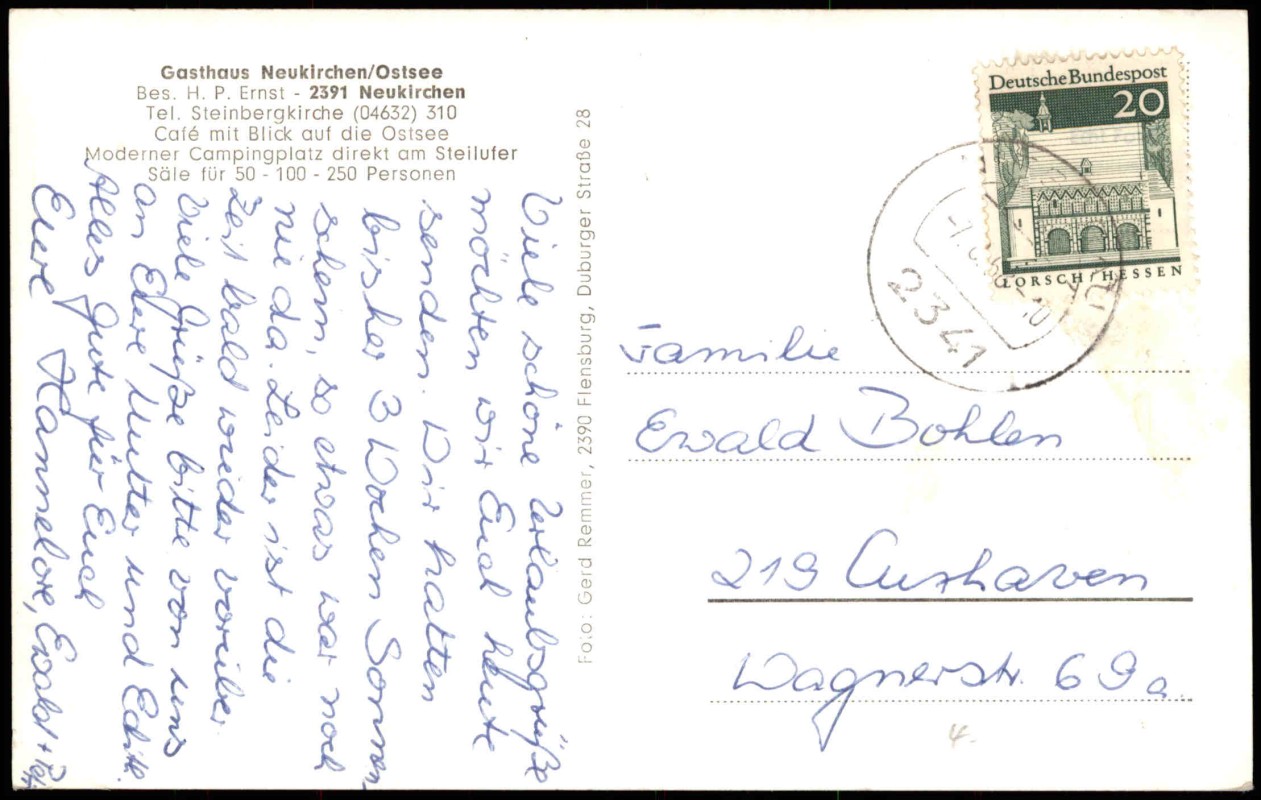 Gasthaus Neukirchen/Ostsee
Bes. H. P. Ernst - 2391 Neukirchen
Tel. Steinbergkirche (04632) 310
Café mit Blick auf die Ostsee
Moderner Campingplatz direkt am Steilufer
Säle für 50 - 100 - 250 Personen
Viele schöne Urlaubsgrüße
möchten wir Euch heute
senden. Wir hatten
bisher 3 Wochen Sonnen
schein, so etwas war noch
nie da. Leider ist die
Zeit bald wieder vorüber.
Viele Grüße bitte von uns
an Eure Mutter und Edith.
Alles Gute für Euch
Eure Hannelore, Ewald +
Foto: Gerd Remmer, 2390 Flensburg, Duburger Straße 28
Deutsche Bundespost
20
LORSCH/HESSEN
2341
Familie
Ewald Bohlen
219 Cuxhaven
Wagnerstr. 69a
4.